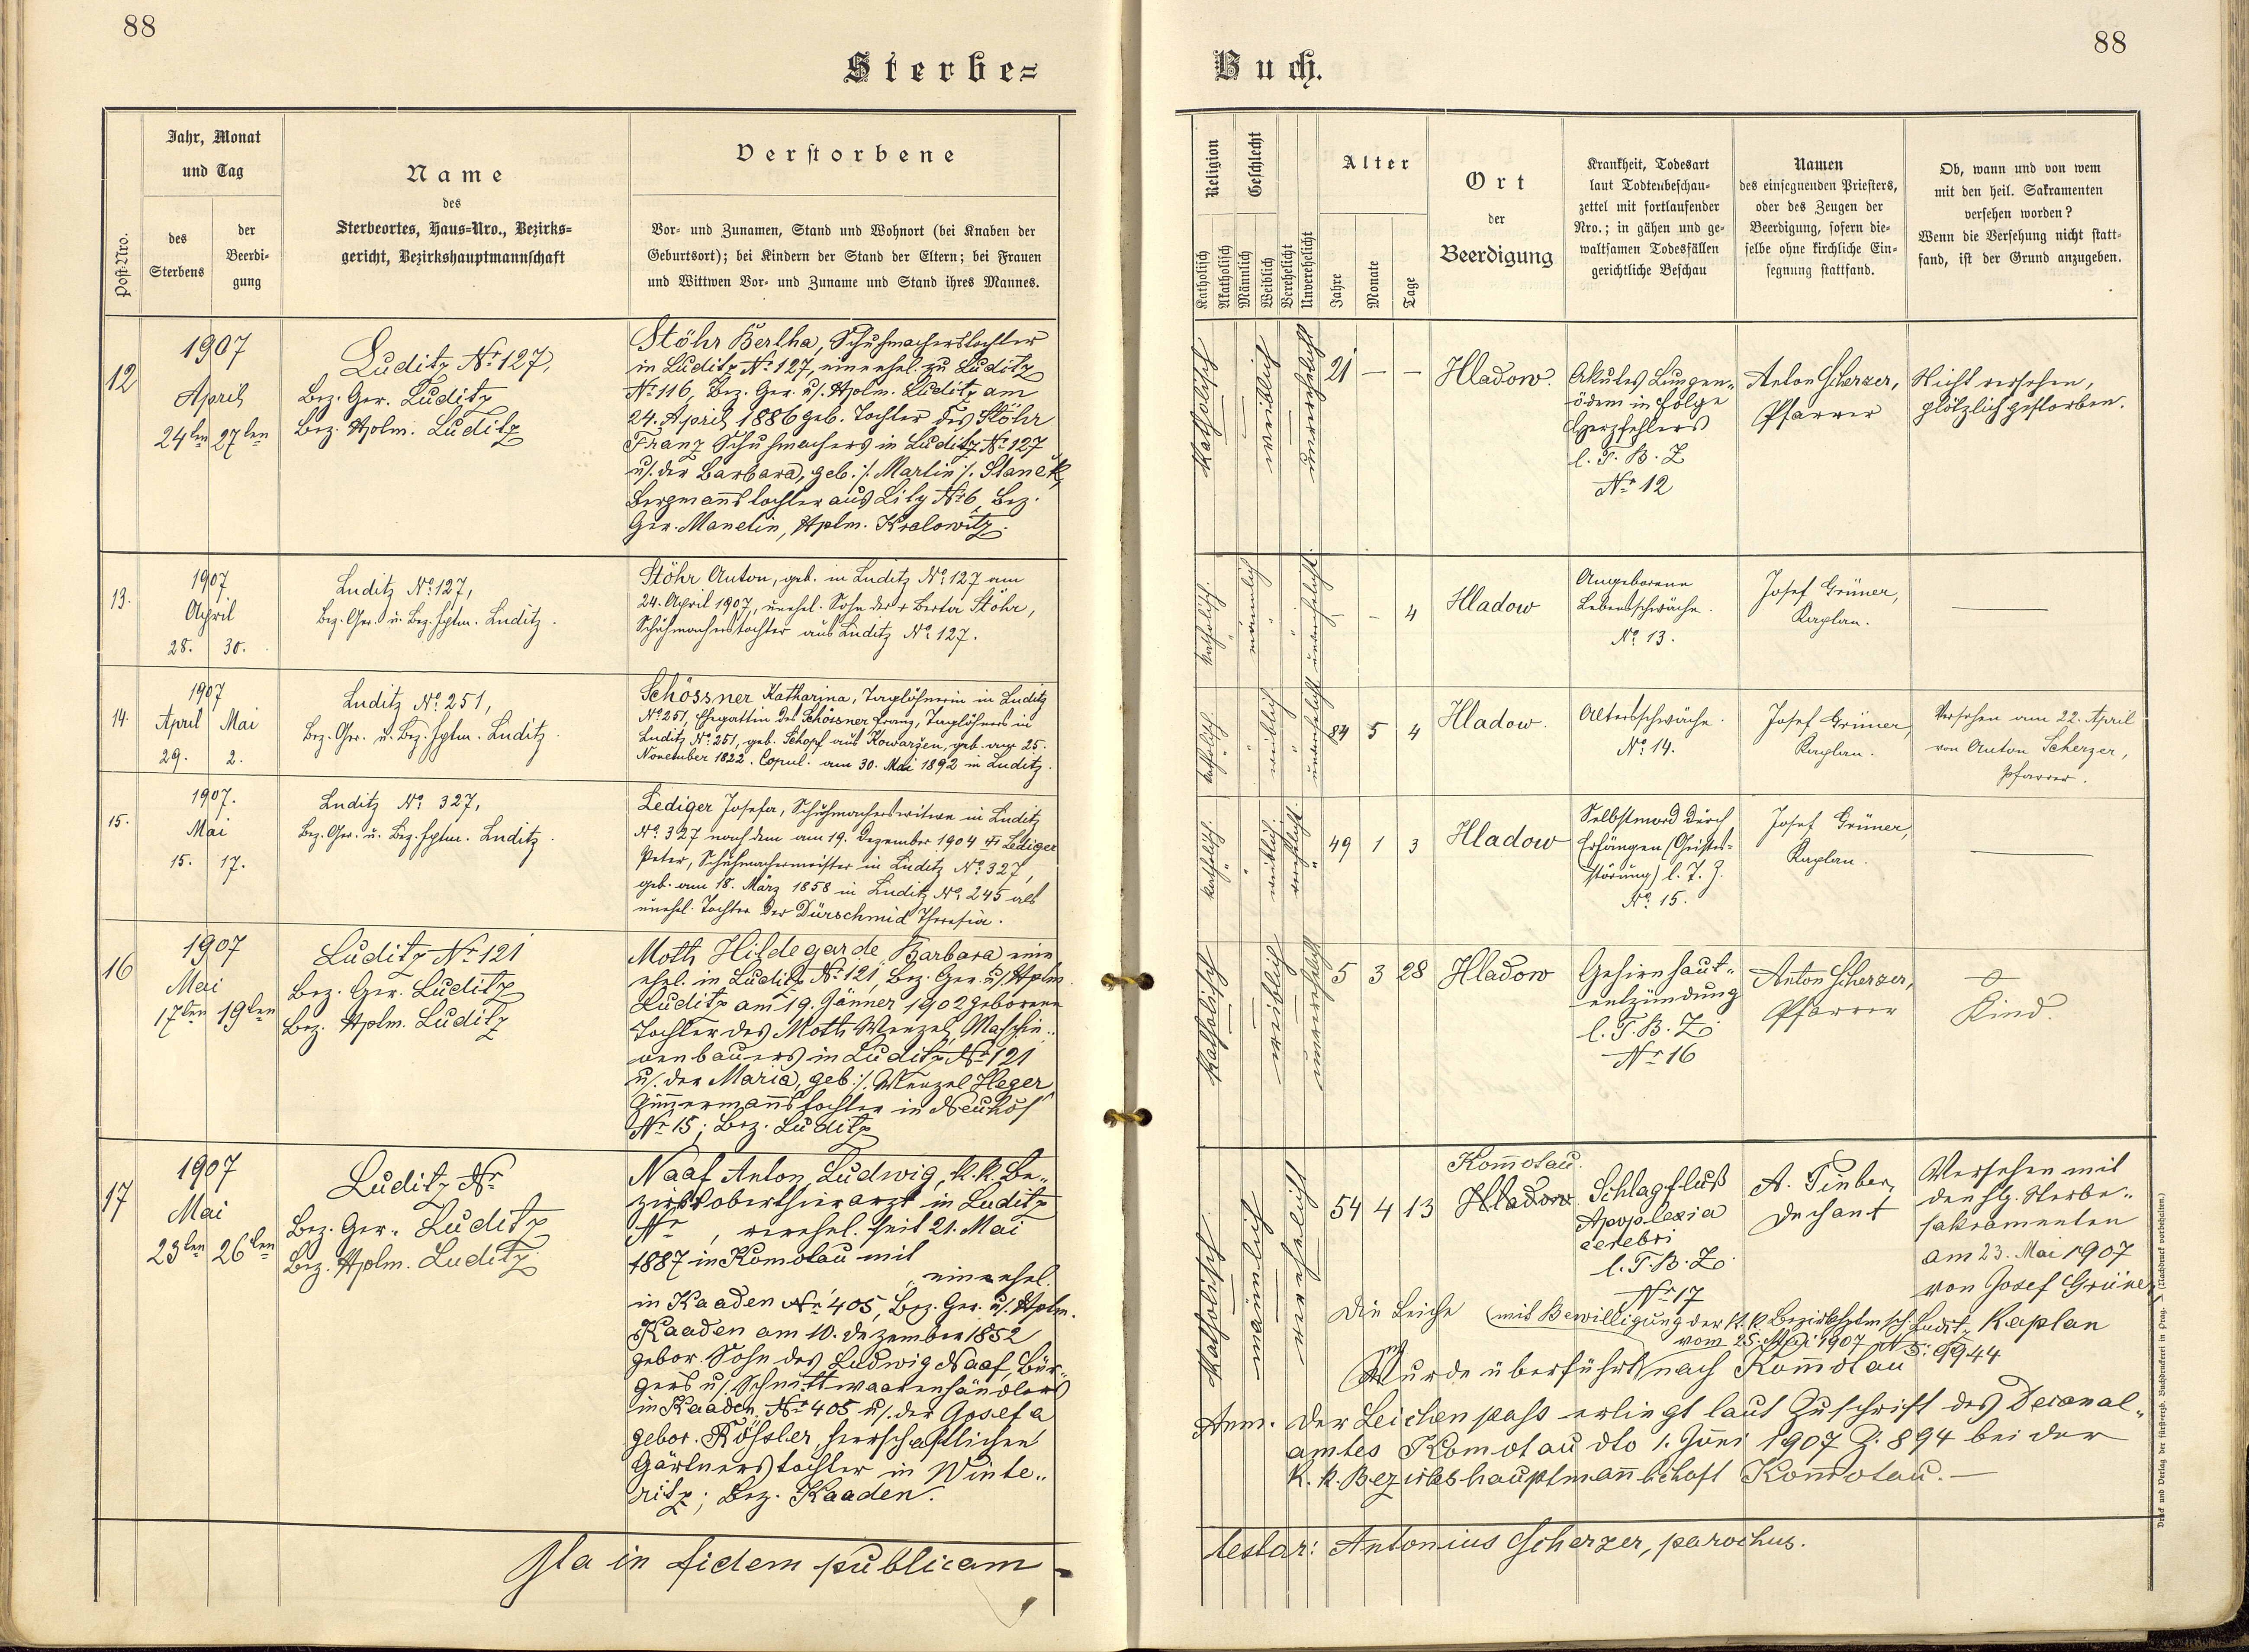 88
88
Sterbe=
Buch.
Post-Nro.
Jahr, Monat
und Tag
des
Sterbens
der
Beerdi-
gung
Name
des
Sterbeortes, Haus-Nro., Bezirks-
gericht, Bezirkshauptmannschaft
Verstorbene
Vor- und Zunamen, Stand und Wohnort (bei Knaben der
Geburtsort); bei Kindern der Stand der Eltern; bei Frauen
und Wittwen Vor- und Zuname und Stand ihres Mannes.
Religion
Katholisch
Akatholisch
Geschlecht
Männlich
Weiblich
Verehelicht
Unverehelicht
Alter
Jahre
Monate
Tage
Ort
der
Beerdigung
Krankheit, Todesart
laut Todtenbeschau-
zettel mit fortlaufender
Nro.; in gähen und ge-
waltsamen Todesfällen
gerichtliche Beschau
Namen
des einsegnenden Priesters,
oder des Zeugen der
Beerdigung, sofern die-
selbe ohne kirchliche Ein-
segnung stattfand.
Ob, wann und von wem
mit den heil. Sakramenten
versehen worden?
Wenn die Versehung nicht statt-
fand, ist der Grund anzugeben.
12
1907
April
24ten 27ten
Luditz Nr 127,
Bez. Ger. Luditz
Bez. Hptm. Luditz
Stöhr Bertha, Schuhmacherstochter
in Luditz Nr 127, eine ehel. zu Luditz
Nr 116, Bez. Ger. u/. Hptm. Luditz am
24. April 1886 geb. Tochter des Stöhr
Franz Schuhmachers in Luditz Nr 127
u/. der Barbara, geb. /. Martin /. Staněk,
Bergmannstochter aus Lity Nr 6, Bez.
Ger. Manetin, Hptm. Kralowitz.
katholisch
weiblich
unverehelicht
21 — —
Hladow.
Akutes Lungen-
ödem in Folge
Herzfehlers
l. T. B. Z
Nr 12
Anton Scherzer,
Pfarrer
Nicht versehen,
plötzlich gestorben.
13.
1907
April
28. 30.
Luditz No 127,
Bez. Ger. u. Bez. Hptm. Luditz.
Stöhr Anton, geb. in Luditz No 127 am
24. April 1907, unehel. Sohn der + Berta Stöhr,
Schuhmacherstochter aus Luditz No 127.
katholisch.
männlich
unverehelicht.
- - 4
Hladow
Angeborene
Lebensschwäche.
No 13.
Josef Grüner,
Kaplan.
14.
1907
April Mai
29. 2.
Luditz No 251,
Bez. Ger. u. Bez. Hptm. Luditz.
Schössner Katharina, Taglöhnerin in Luditz
No 251, Ehegattin des Schössner Franz, Taglöhners in
Luditz No 251, geb. Schopf aus Kowarzen, geb. am 25.
November 1822. Copul. am 30. Mai 1892 in Luditz.
katholisch.
weiblich
84 5 4
Hladow.
Altersschwäche.
No 14.
Josef Grüner,
Kaplan.
Versehen am 22. April
von Anton Scherzer,
Pfarrer.
15.
1907.
Mai
15. 17.
Luditz No 327,
Bez. Ger. u. Bez. Hptm. Luditz.
Lediger Josefa, Schuhmacherswitwe in Luditz
No 327 nach dem am 19. Dezember 1904 + Lediger
Peter, Schuhmachermeister in Luditz No 327,
geb. am 18. März 1858 in Luditz No 245 als
unehel. Tochter der Dürschmid Theresia.
katholisch.
weiblich.
verehelicht.
49 1 3
Hladow
Selbstmord durch
Erhängen (Geistes-
störung) l. T. Z.
No 15.
Josef Grüner,
Kaplan.
16
1907
Mai
17ten 19ten
Luditz Nr 121
Bez. Ger. Luditz
Bez. Hptm. Luditz
Moth Hildegarde Barbara eine
ehel. in Luditz Nr 121, Bez. Ger. u/. Hptm.
Luditz am 19. Jänner 1902 geborene
Tochter des Moth Wenzel, Maschin-
nenbauers in Luditz Nr 121
u/. der Maria, geb. /. Wenzel Heger
Zimmermannstochter in Neuhof
Nr 15; Bez. Luditz
katholisch
weiblich
unverehelicht
5 3 28
Hladow
Gehirnhaut-
entzündung
l. T. B. Z.
Nr 16
Anton Scherzer,
Pfarrer
Kind.
17
1907
Mai
23ten 26ten
Luditz Nr
Bez. Ger. Luditz
Bez. Hptm. Luditz
Naaf Anton Ludwig, k. k. Be-
zirksoberthierarzt in Luditz
Nr , verehel. seit 21. Mai
1887 in Komotau mit
, eine ehel.
in Kaaden Nr 405, Bez. Ger. u/. Hptm.
Kaaden am 10. Dezember 1852
gebor. Sohn des Ludwig Naaf, Bür-
gers u/. Schnittwaarenhändlers
in Kaaden, Nr 405 u/. der Josefa
gebor. Rößler, herrschaftlichen
Gärtnerstochter in Winte-
ritz; Bez. Kaaden.
katholisch
männlich
verehelicht
54 4 13
Komotau.
Hladow
Schlagfluß
Apoplexia
cerebri
l. T. B. Z.
Nr 17
Dechant
Versehen mit
den hlg. Sterbe-
sakramenten
am 23. Mai 1907
von Josef Grüner
Kaplan
Die Leiche (mit Bewilligung der k. k. Bezirkshptmsch. Ludit.
vom 25. Mai 1907 N. E. 9944
wurde überführt nach Komotau
Anm. Der Leichenpass erliegt laut Zuschrift des Decanal-
amtes Komotau dto 1. Juni 1907 Z. 894 bei der
k. k. Bezirkshauptmannschaft Komotau. —
Ita in fidem publicam
testor: Antonius Scherzer, parochus.
Druck und Verlag der fürsterzb. Buchdruckerei in Prag. (Nachdruck vorbehalten.)